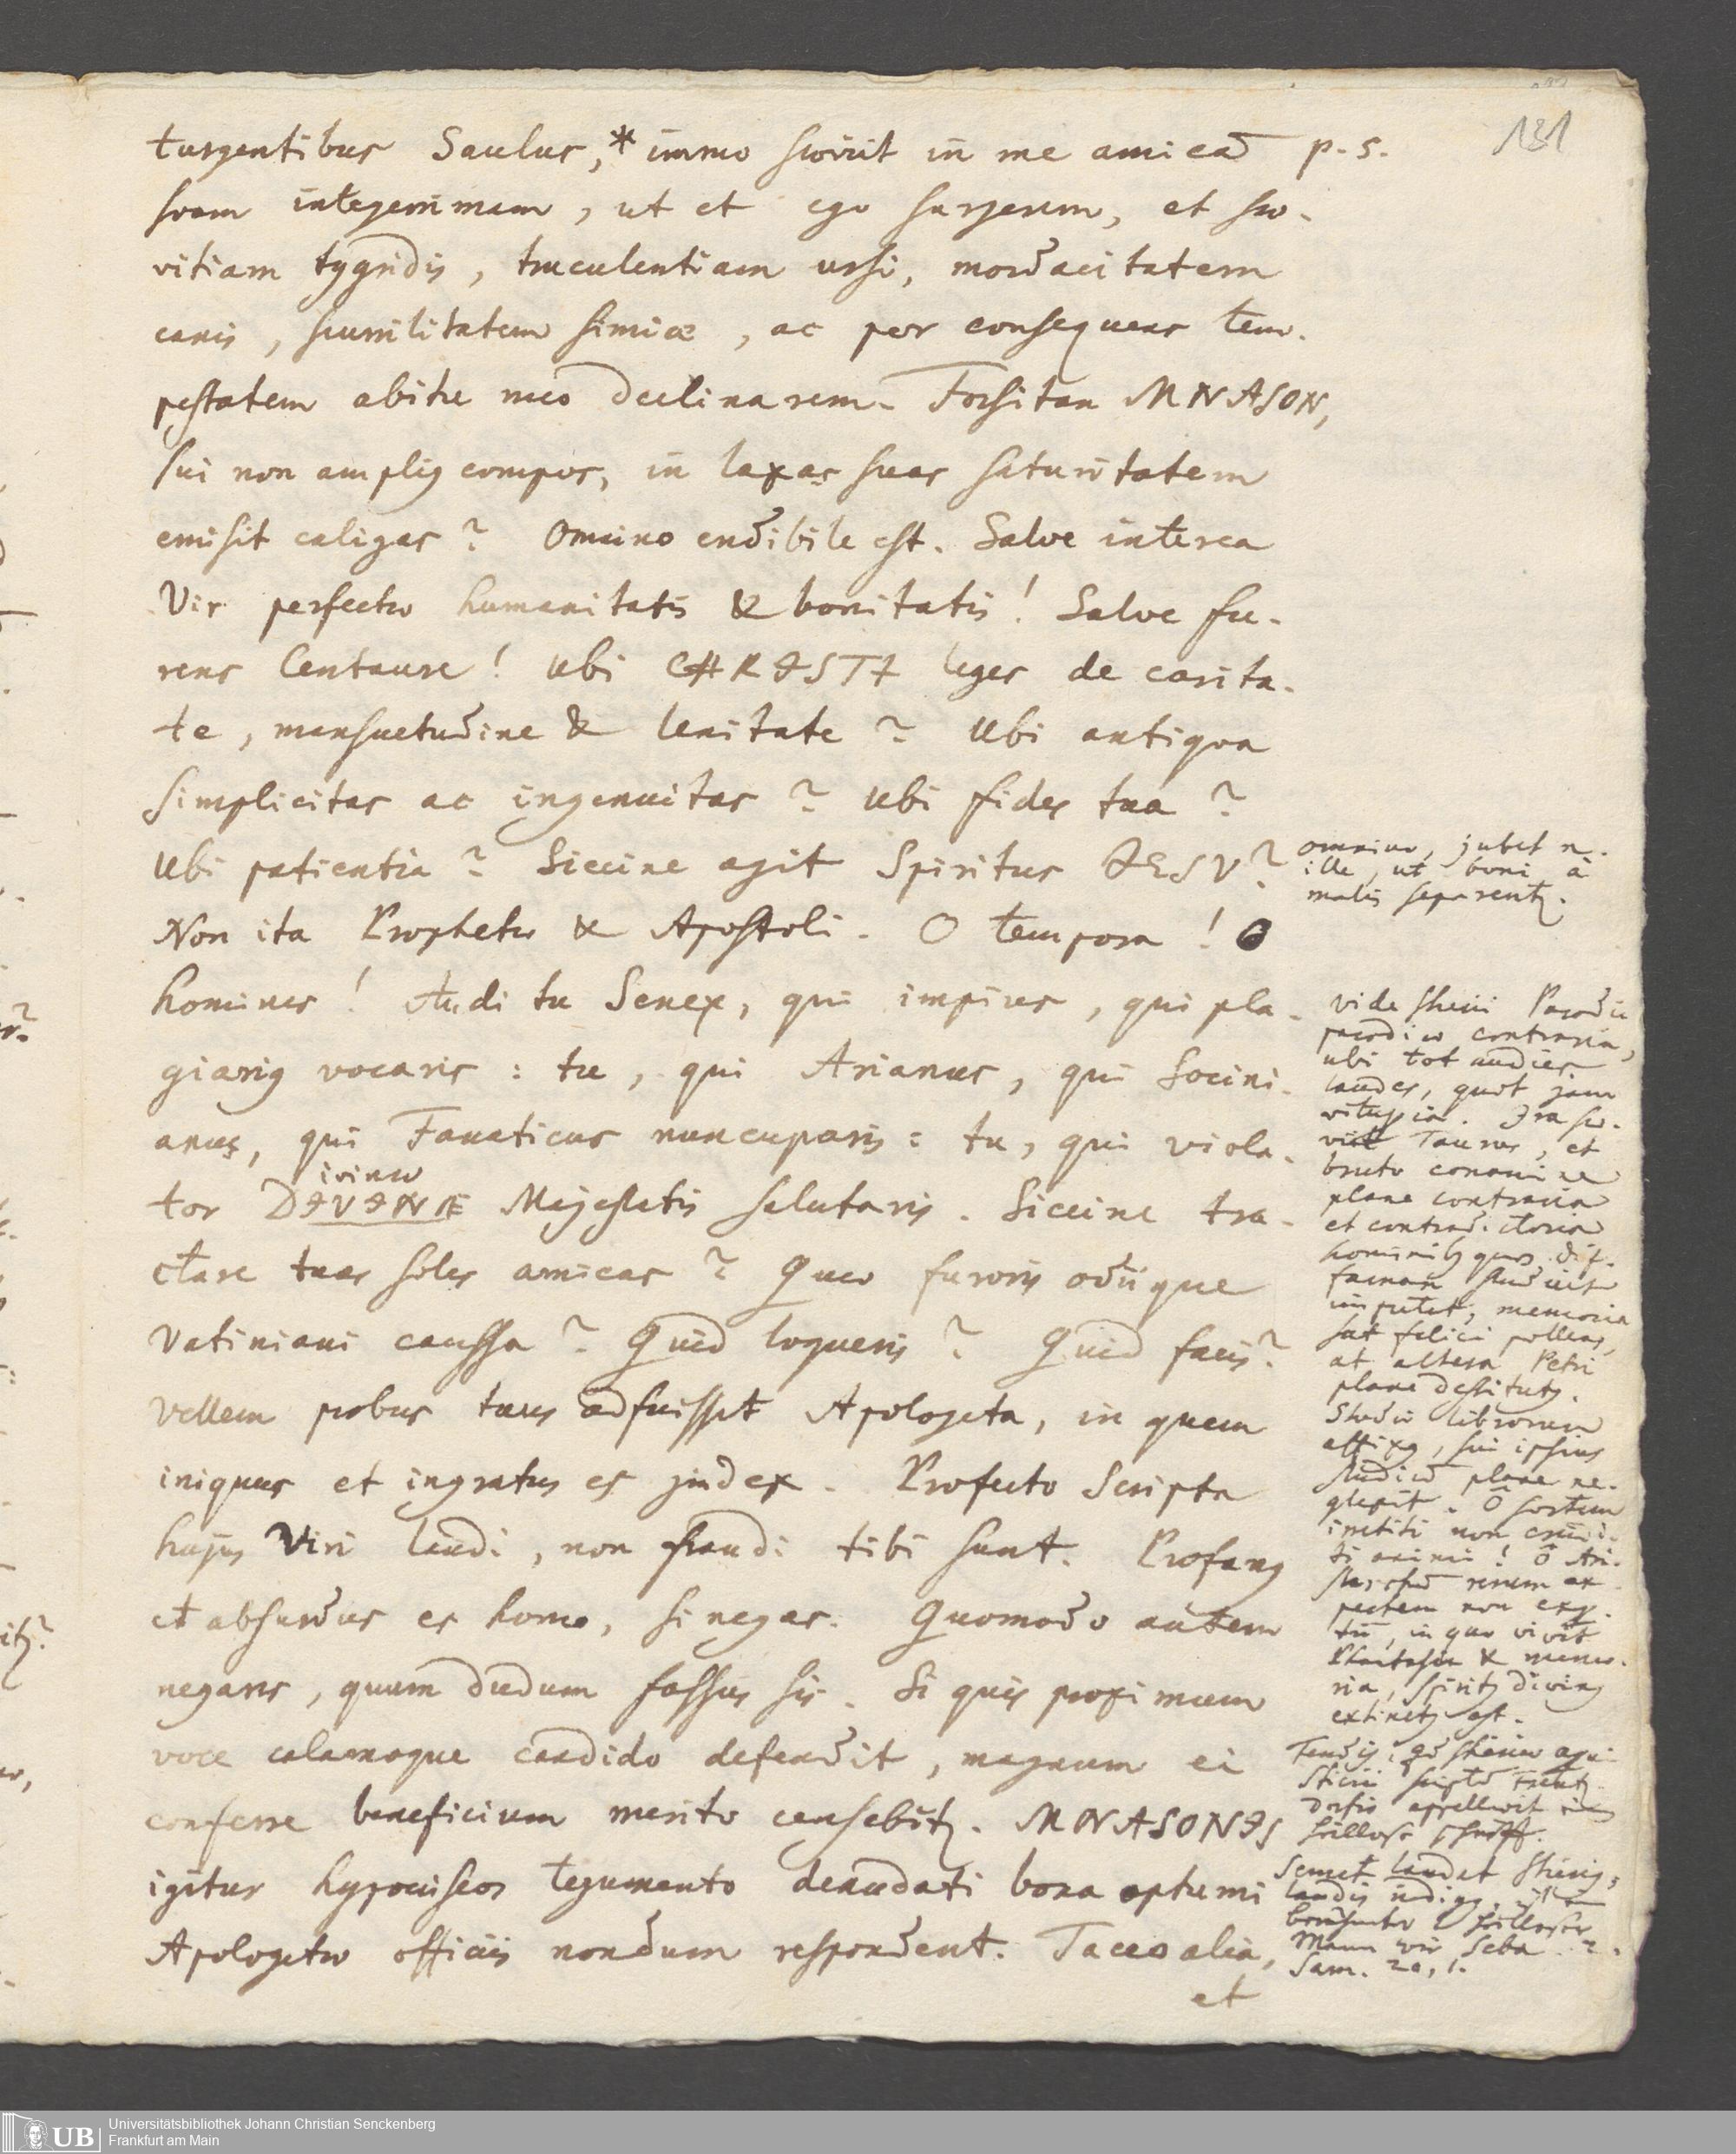 131
turgentibus Saulus,* immo sævit in me amicam p. 5.
suam integerrimam, ut et ego surgerem, et sæ-
vitiam tygridis, truculentiam ursi, mordacitatem
canis, scurrilitatem simiæ, ac per consequens tem-
pestatem abitu meo declinarem. Forsitan MNASON,
sui non amplig compos, in laxas suas saturitatem
emisit caligas? Omnino credibile est. Salve interea
Vir perfectæ humanitatis & bonitatis! Salve fu-
rens Centaure! Ubi CHRISTI leges de carita-
te, mansuetudine & lenitate? Ubi antiqua
simplicitas ac ingenuitas? Ubi fides tua?
Ubi patientia? Siccine agit Spiritus JESU?
Non ita Prophetæ & Apostoli. O tempora! O
homines! Audi tu Senex, qui impius, qui pla-
giarig vocaris: tu, qui Arianus, qui Socini-
anus, qui Fanaticus nuncuparis: tu, qui viola-
ivinæ
tor DIVINÆ Majestatis salutaris. Siccine tra-
ctare tuas soles amicas? Quæ furoris odiique
Vatiniani caussa? Quid loqueris? Quid facis?
Vellem probus tuus adfuisset Apologeta, in quem
iniquus et ingratus es judex. Profecto Scripta
hujus Viri laudi, non fraudi tibi sunt. Profang
et absurdus es homo, si negas. Quomodo autem
negares, quum dudum fassus sis. Si quis proximum
voce calamoque candido defendit, magnum ei
conferre beneficium merito censebitur. MNASONIS
igitur hypocriseos tegumento denudati bona optumi
Apologetæ officiis nondum respondent. Taceo alia,
et
omnino, jubet n.
ille, ut boni à
malis separentur.
vide Parodiæ
parodiæ contraria,
ubi tot audies
laudes, quot jam
vituperia. Ira sæ-
viit Taurus, et
bruto conamine
plane contraria
et contradictoria
hominibus quos dif-
famare
imputat, memoria
sat felici pollens,
at altera Petri
plane destitutg.
Studio librorum
affixg, sui ipsius
studium plane ne-
glexit. O sortem
non
ti animi! O Ari-
rerum ex-
pertem non exp-
in quo vivit
Phantasia & memo-
ria, Spiritg diving
extinctg est.

appellavit
Semet laudat
laudis indigg,
Mann wie Seba. 2.
Sam. 20, 1.
UB
Universitätsbibliothek Johann Christian Senckenberg
Frankfurt am Main